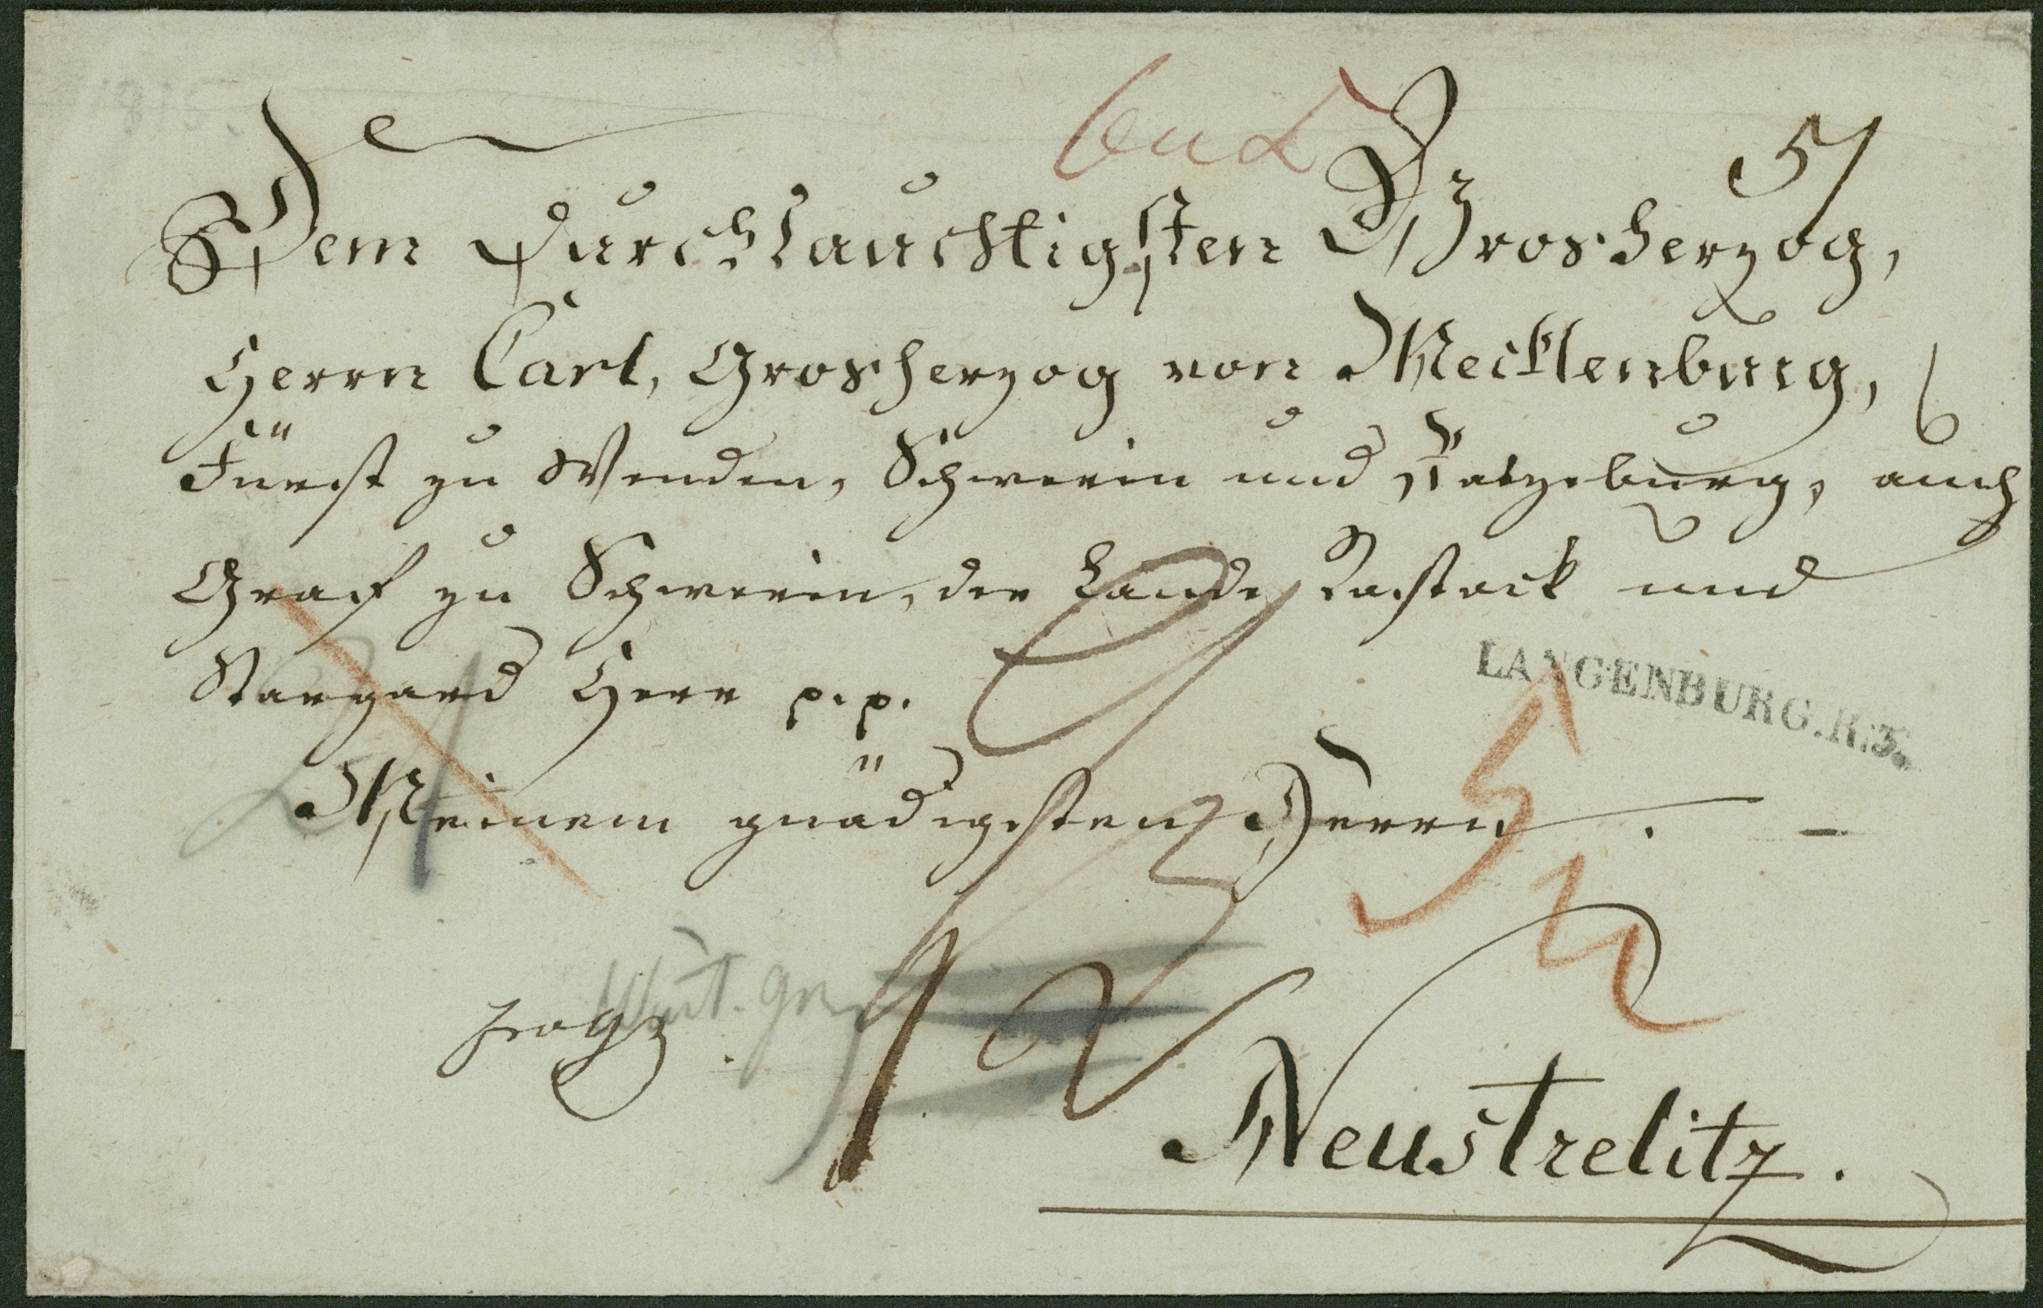 Dem Durchlauchtigsten Grosherzog,
Herrn Carl, Grosherzog von Mecklenburg,
Fürst zu Wenden, Schwerin und Ratzeburg, auch
Graf zu Schwerin, der Lande Rostock und
Stargard Herr p.p.
LANGENBURG.R.3.
Meinem gnädigsten Herrn.
Neustrelitz.